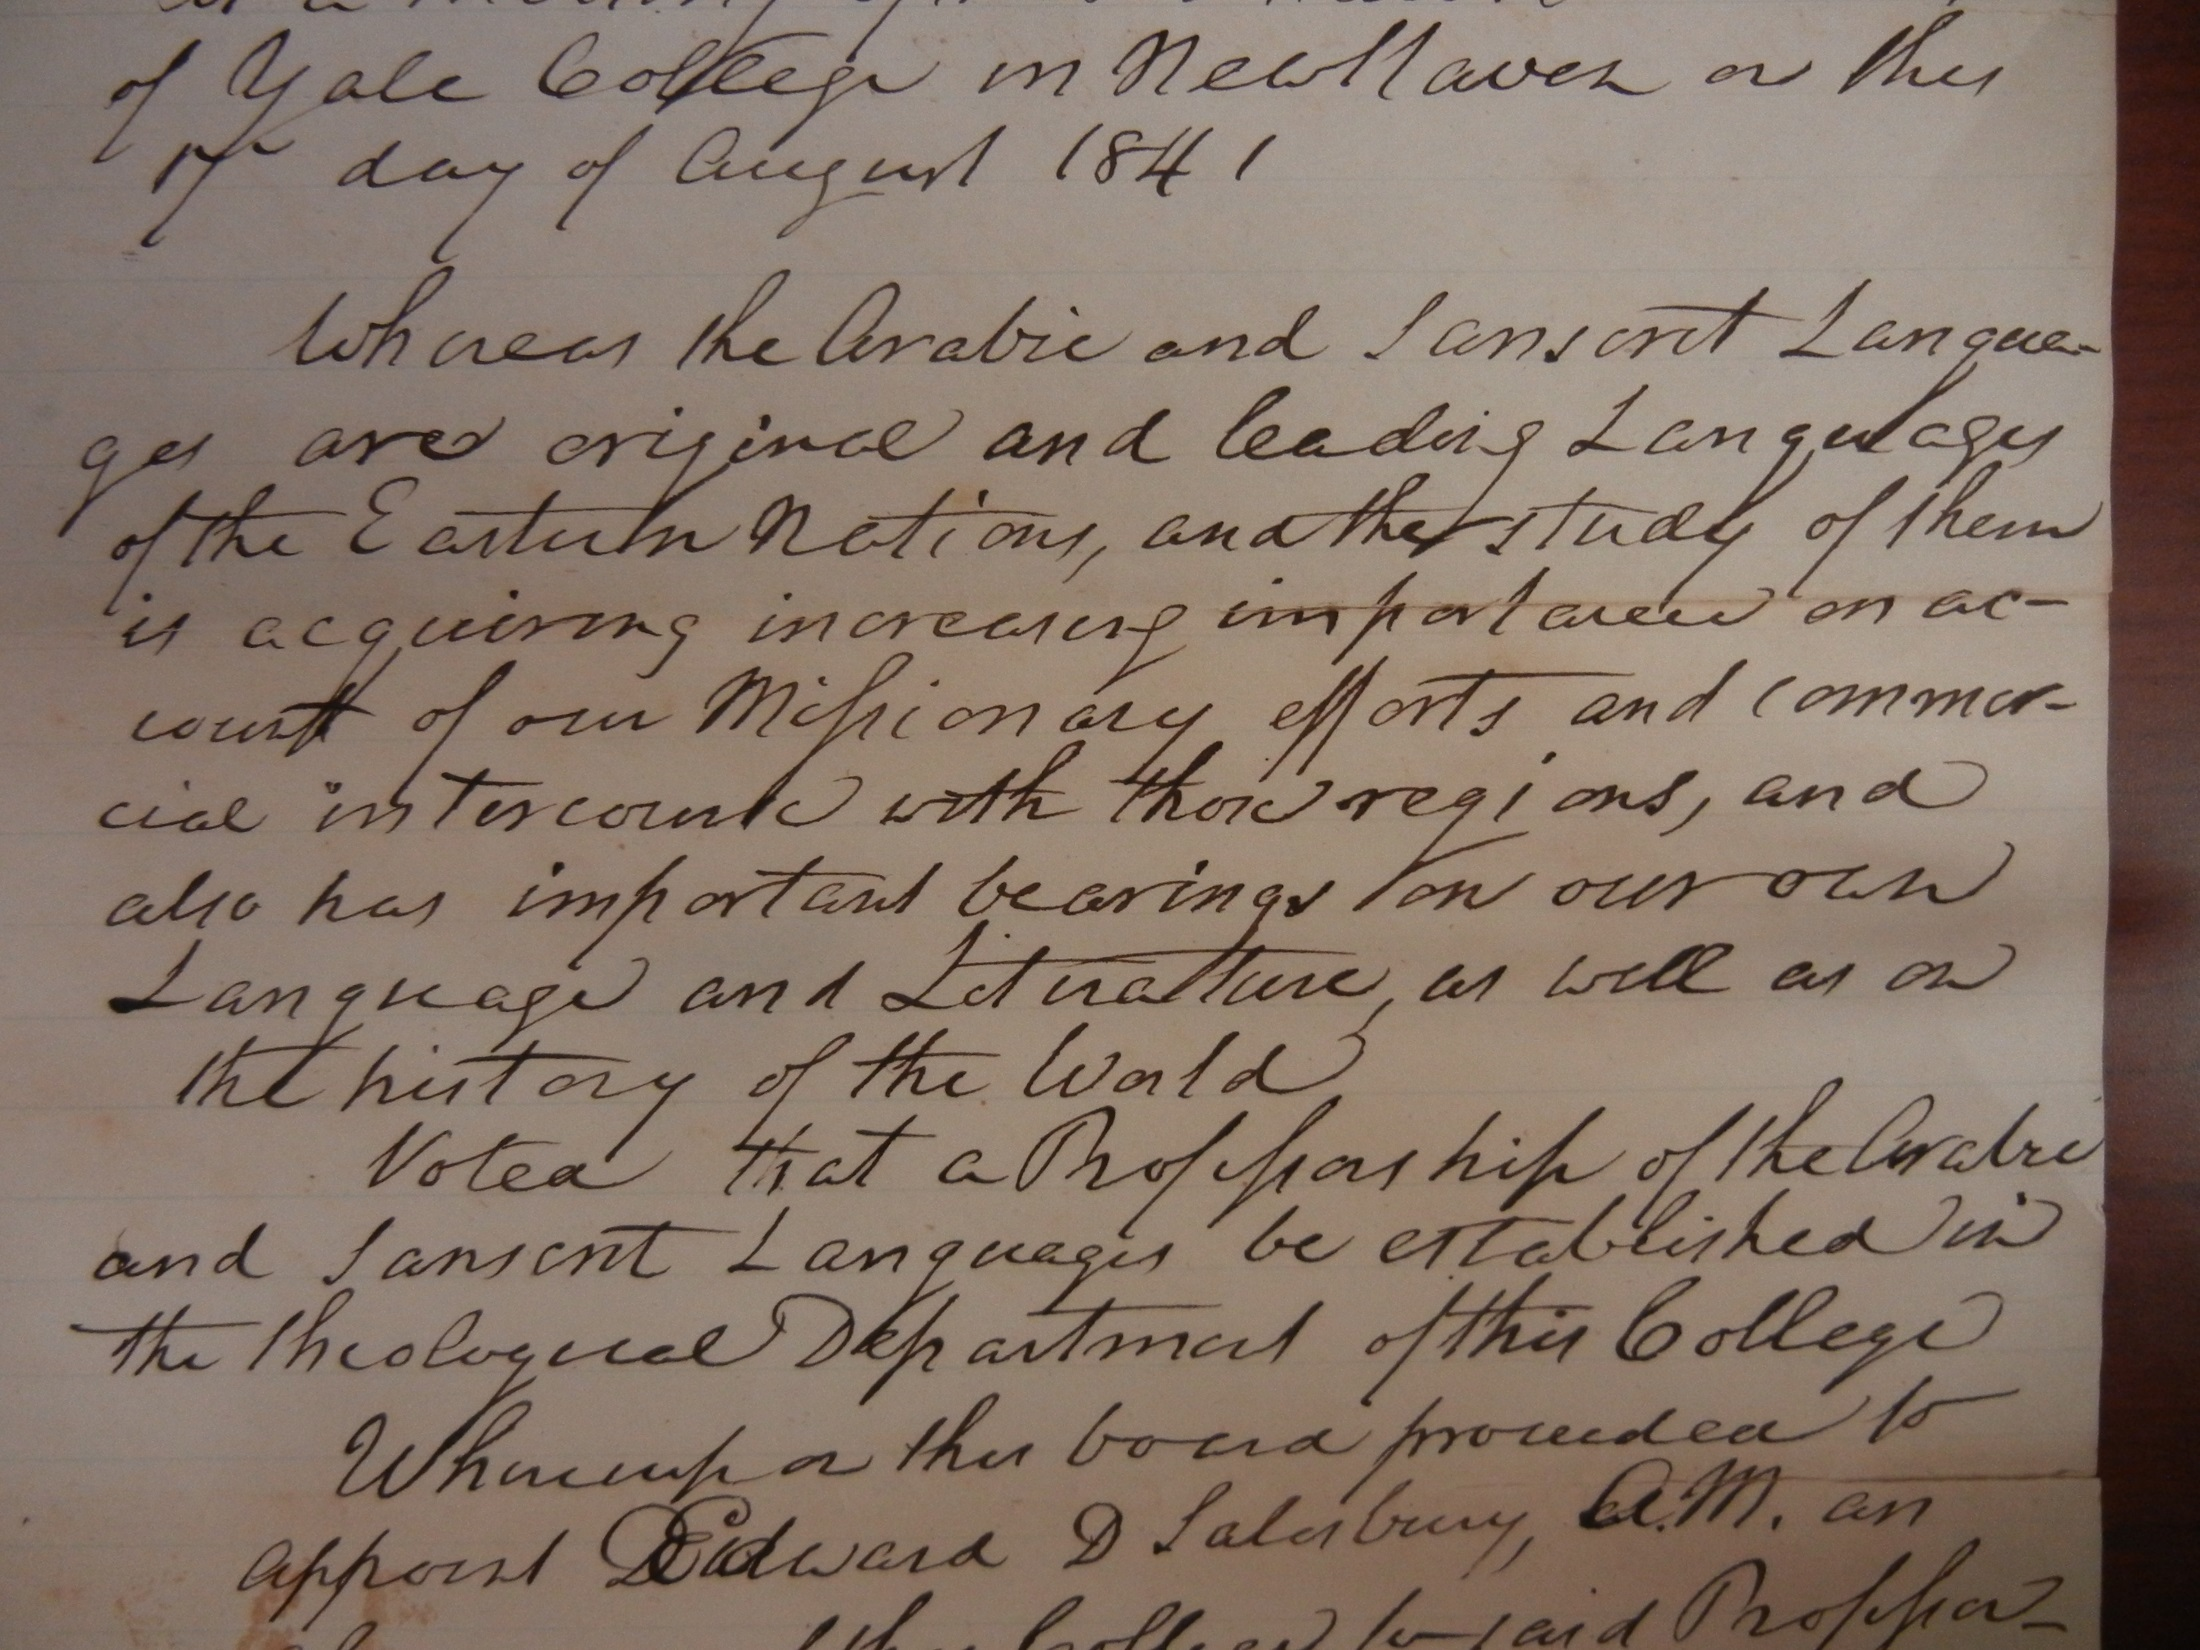 of Yale College in New Haven on this
17th day of August 1841
Whereas the Arabic and Sanscrit Langua-
ges are original and leading Languages
of the Eastern Nations, and the study of them
is acquiring increasing importance on ac-
count of our Missionary efforts and commer-
cial intercourse with those regions, and
also has important bearings on our own
Language and Literature, as well as on
the history of the World
Voted that a Professorship of the Arabic
and Sanscrit Languages be established in
the Theological Department of this College
Whereupon this board proceeded to
appoint Edward D Salisbury, A.M. an
College to said Professor-